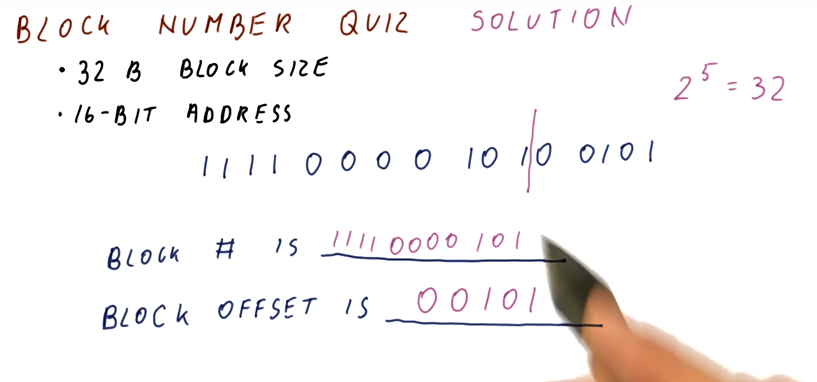 BLOCK NUMBER QUIZ SOLUTION
• 32 B BLOCK SIZE
2^5 = 32
• 16-BIT ADDRESS
1111 0000 1010 0101
BLOCK # IS 1111 0000 101
BLOCK OFFSET IS 00101